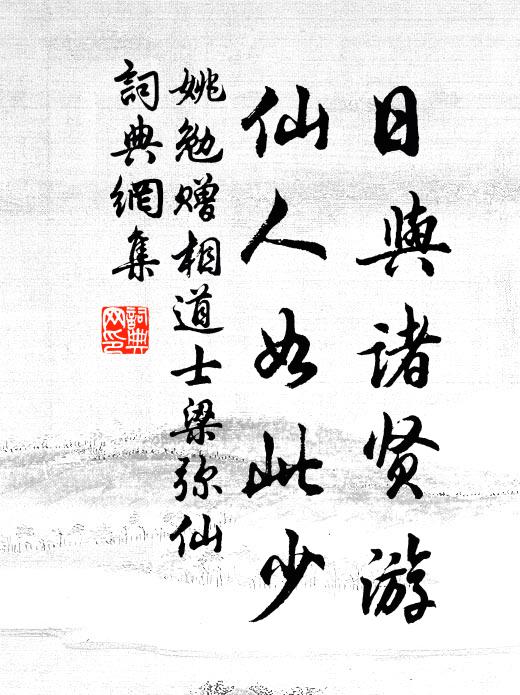 日與諸贤游
仙人如此少
姚勉赠相道士梁弥仙
詞典網集
詞典
网印